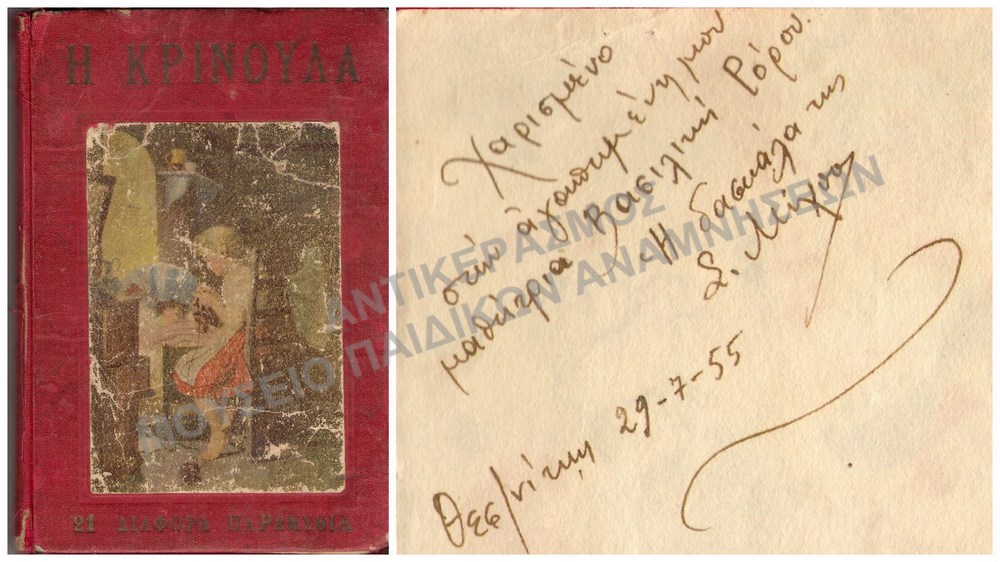 Η ΚΡΙΝΟΥΛΑ
21 ΔΙΑΦΟΡΑ ΠΑΡΑΜΥΘΙΑ
Χαρισμένο
στήν ἀγαπημένη μου
μαθήτρια Βασιλική Ρόρου.
Η δασκάλα της
Σ.
Θεσ/νίκης 29-7-55
ΑΝΤΙΚΕΡΑΣΜΟΣ
ΜΟΥΣΕΙΟ ΠΑΙΔΙΚΩΝ ΑΝΑΜΝΗΣΕΩΝ